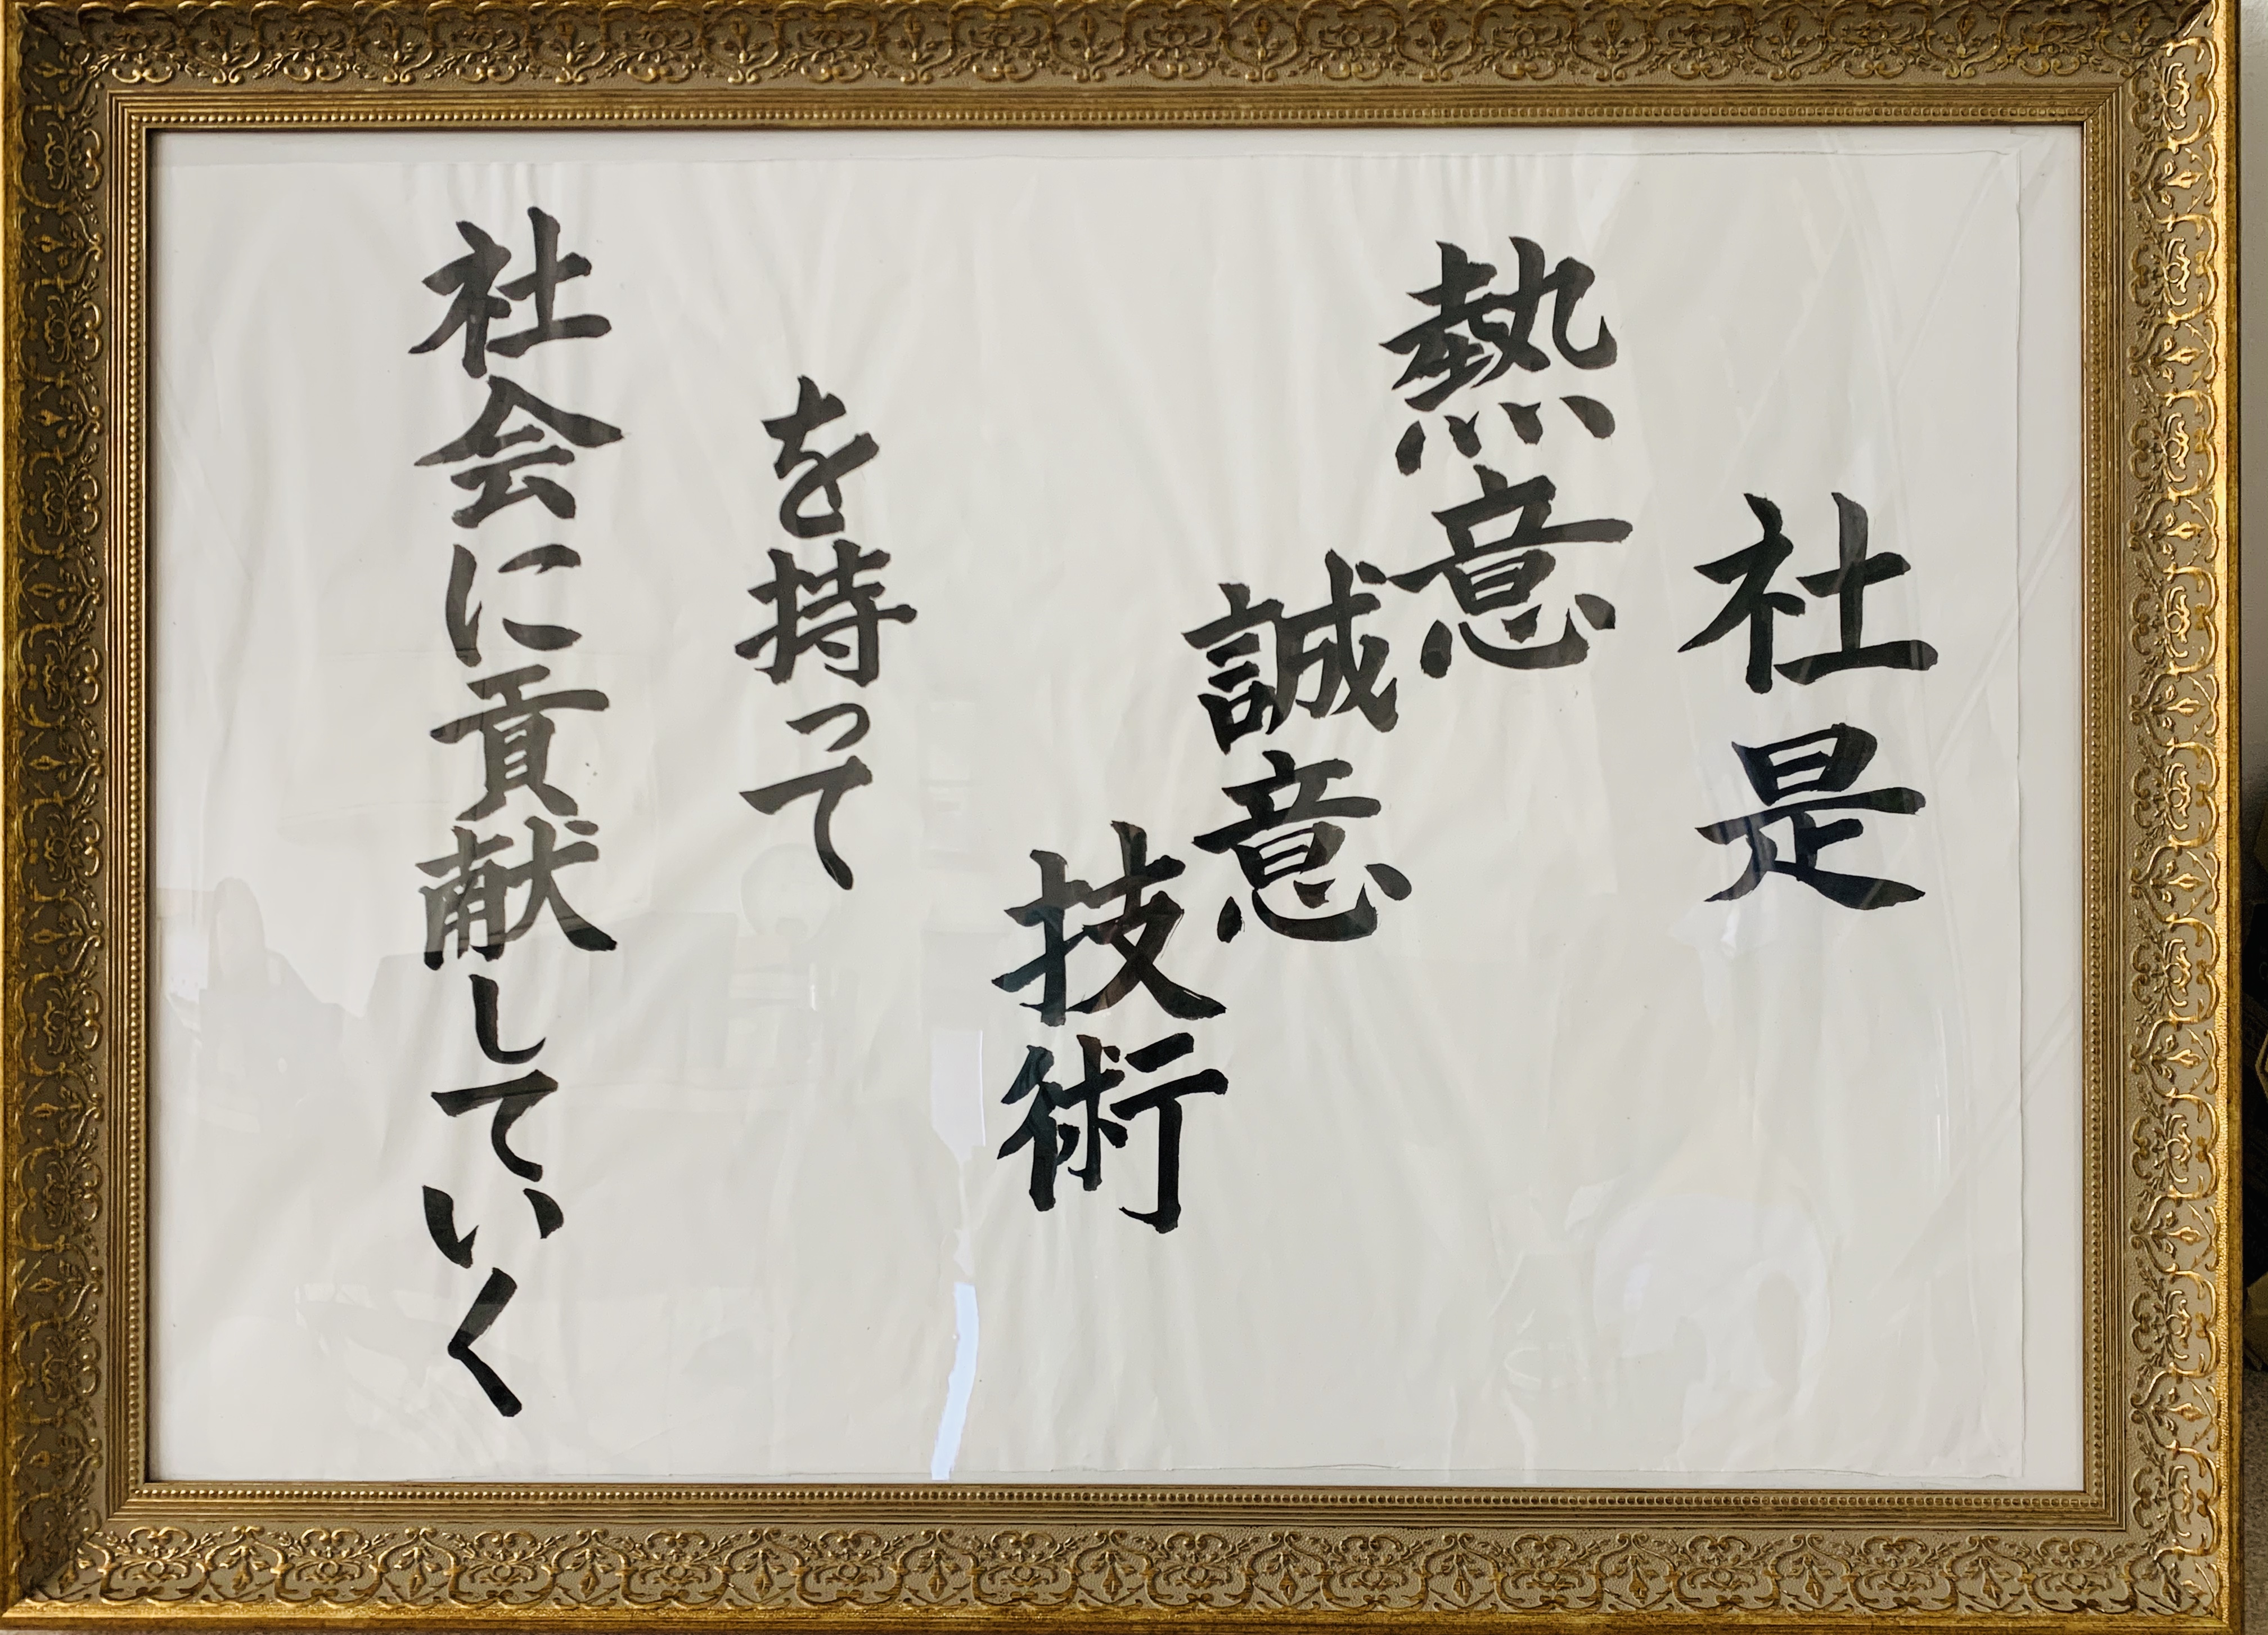 社是
熱意
誠意
技術
を持って
社会に貢献していく